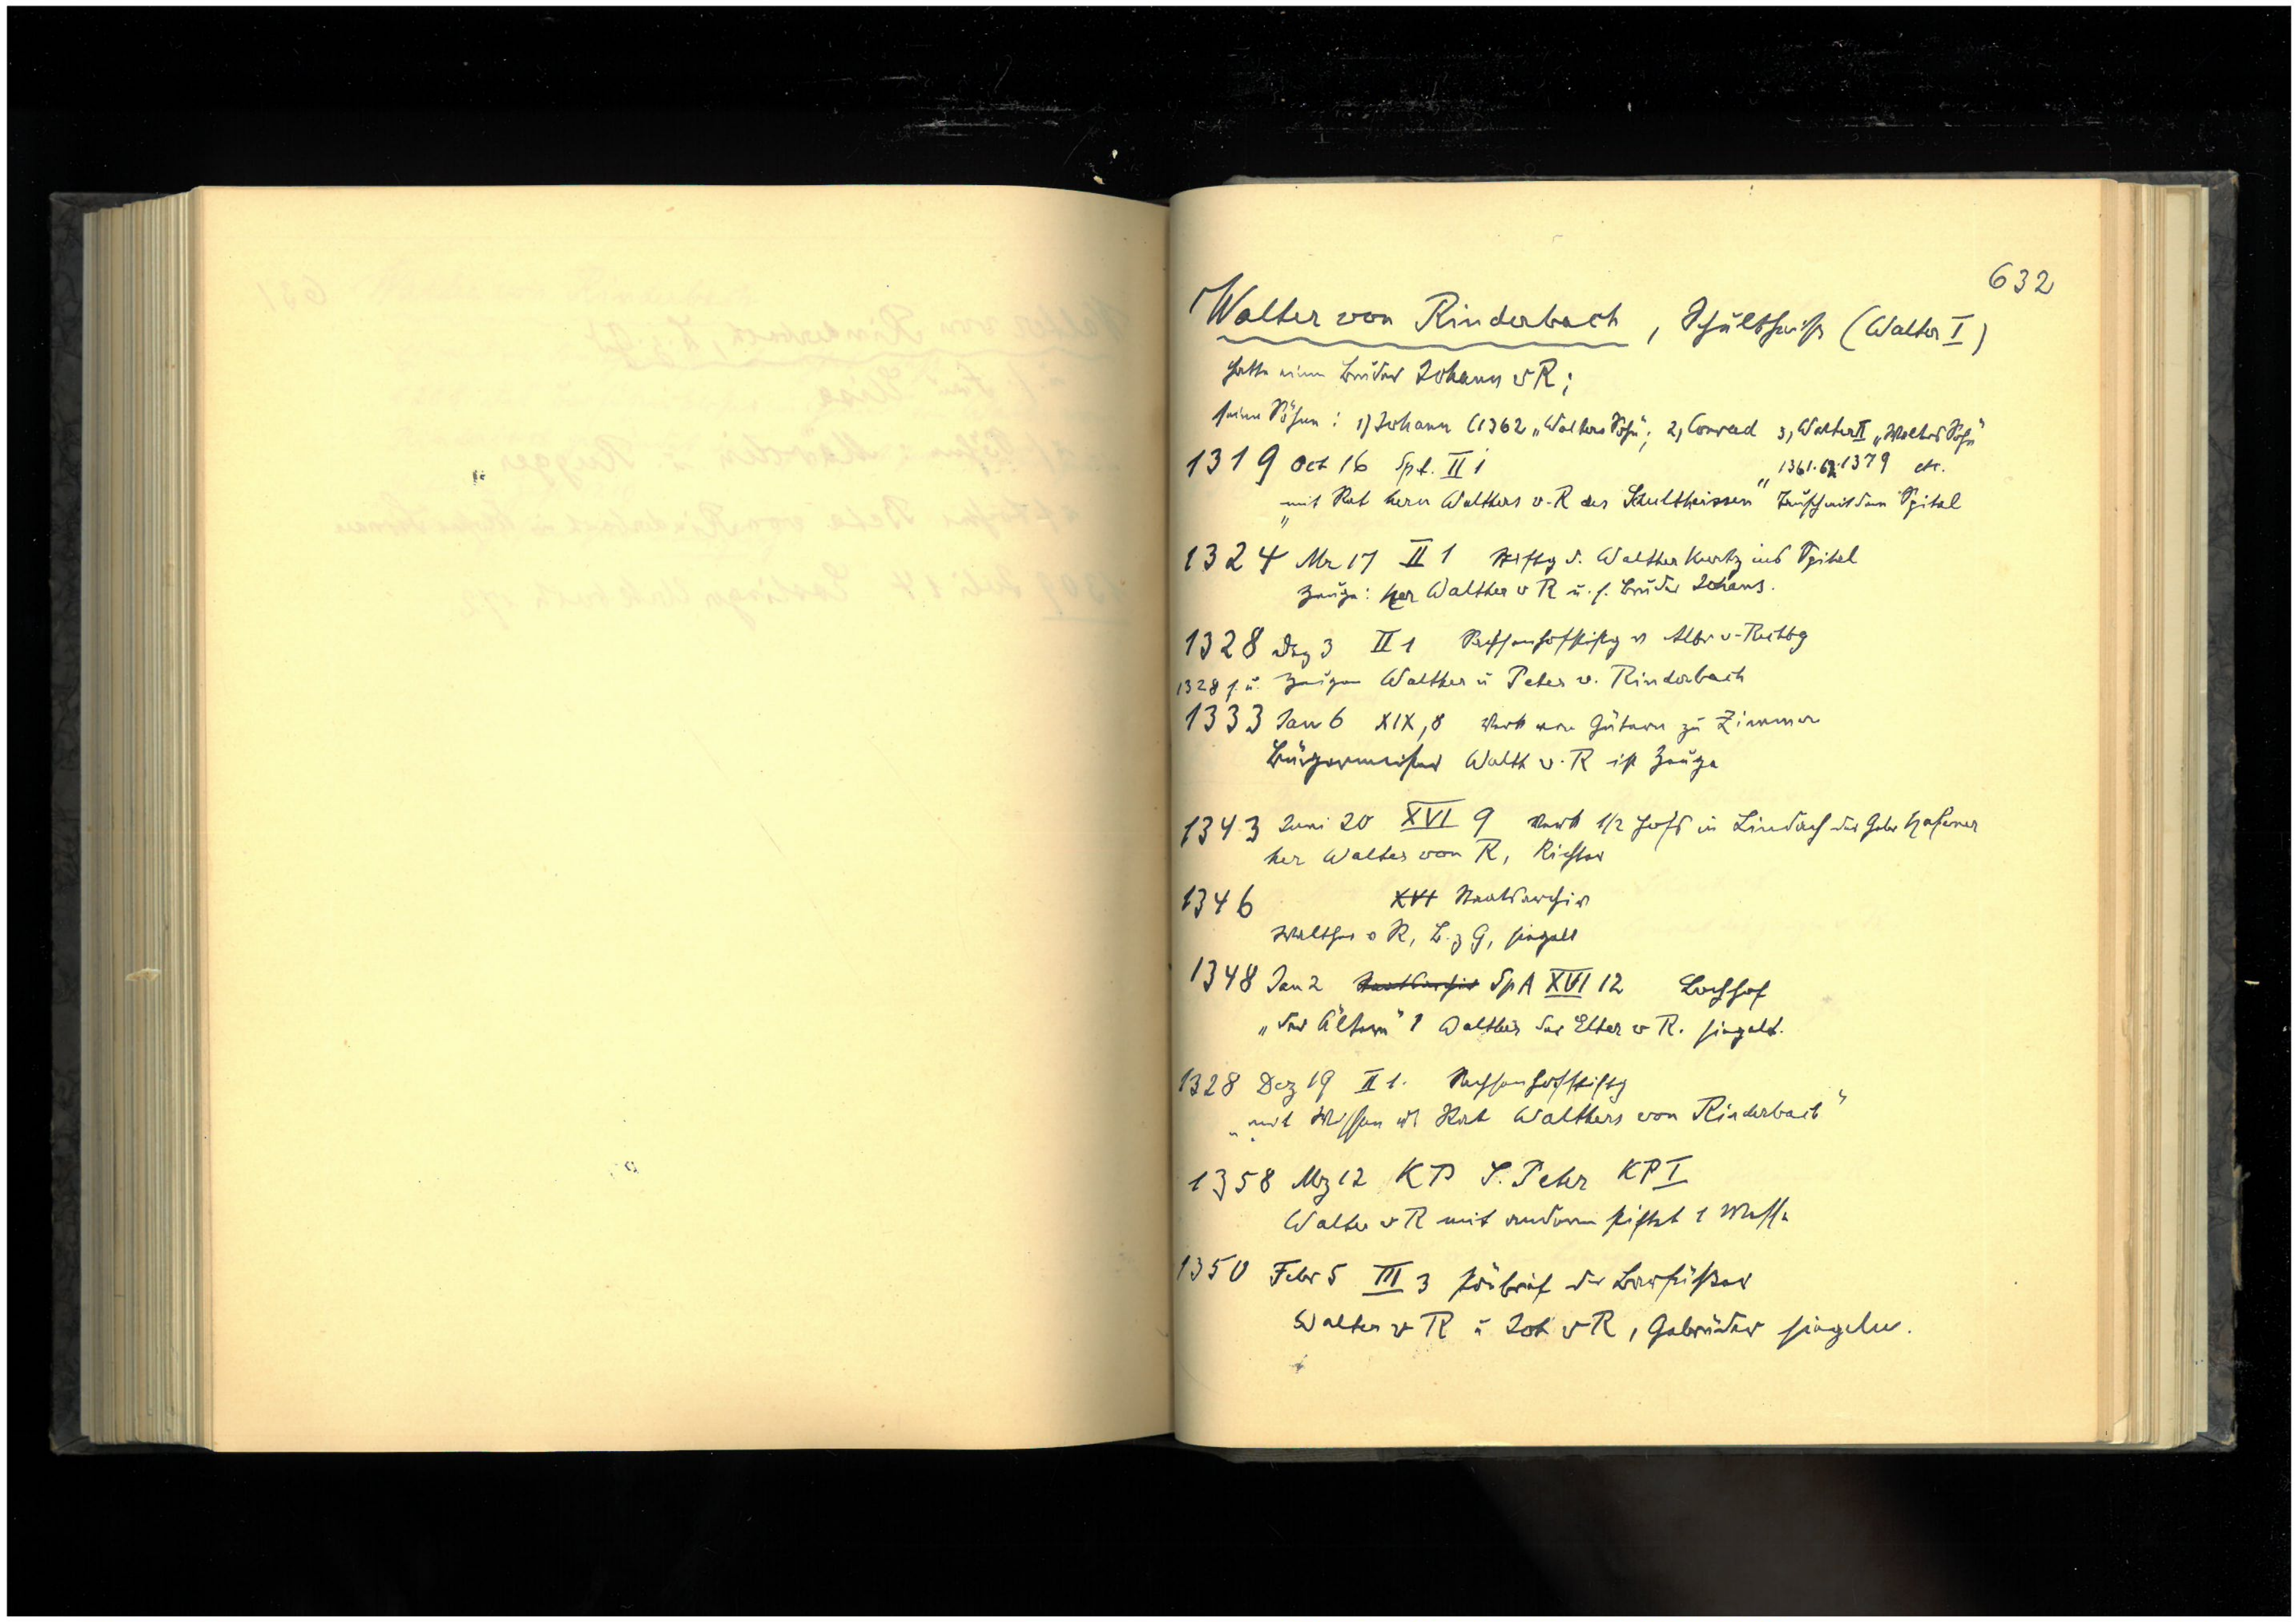 632
Walter von Rinderbach, Schultheiß (Walter I)
hatte einen Bruder Johann v R;
seine Söhne: 1) Johann (1362 „Walters Sohn“; 2, Conrad 3, Walter II „Walters Sohn“
1361.62.1379 etc.
1319 Oct 16 Spt. II 1
„mit Rat hern Walthers v. R des Schultheissen“ Tausch mit dem Spital
1324 Mz 17 II 1 Stiftg d. Walther Kurtz ins Spital
Zeuge: her Walther v R u. s. Bruder Johans.
1328 Dez 3 II 1 v Albr v.
1328 f. u. Zeugen Walther u Peter v. Rinderbach
1333 Jan 6 XIX, 8 Verk von Gütern zu Zimmern
Bürgermeister Walth v. R ist Zeuge
1343 Juni 20 XVI 9 Verk 1/2 Hofs in Lindach der Gebr Hafener
her Walter von R, Richter
1346 XVI Staatsarchiv
Walther v R, B. z G, siegelt
1348 Jan 2 Staatsarchiv SpA XVI 12 Lochhof
„der Ältere“ ! Walther der Elter v R. siegelt.
1328 Dez 19 II 1.
„mit Wissen u Rat Walthers von Rinderbach“
1358 Mz 12 KP S. Peter KP I
Walter v R mit anderen stiftet 1 Messe
1350 Febr 5 III 3 der Barfüßer
Walter v R u Joh v R, Gebrüder siegeln.